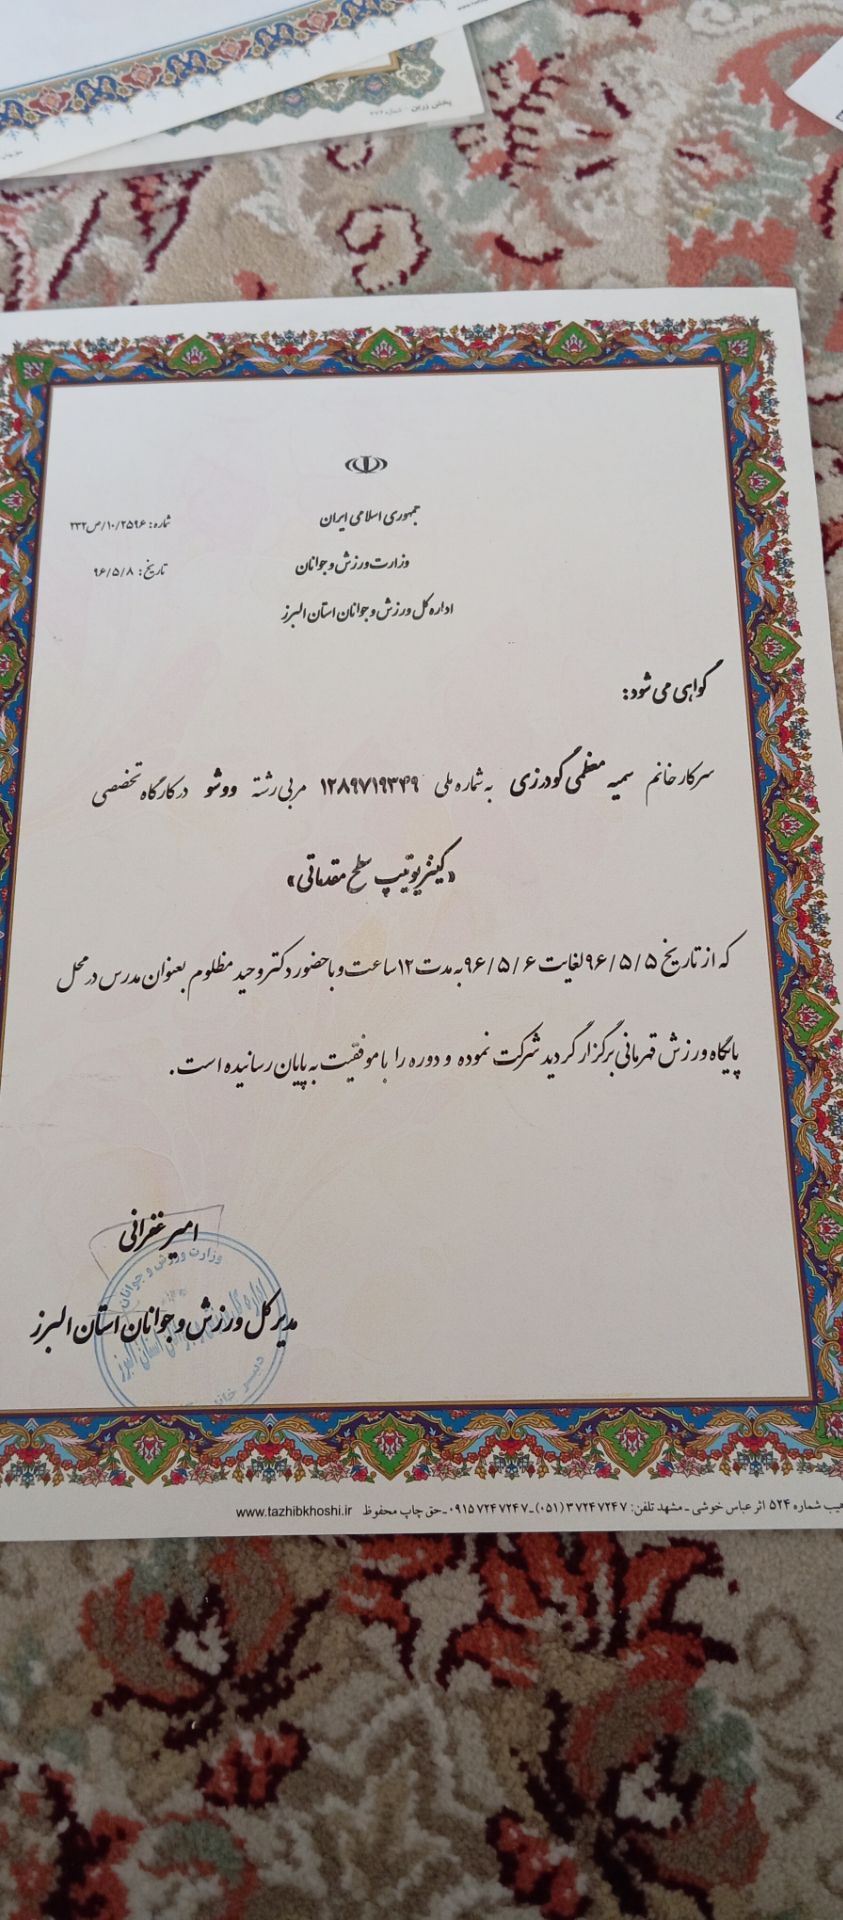 پخش زرین
جمهوری اسلامی ایران
شماره: ۱۰/۲۵۹۶/ص۲۳۲
وزارت ورزش و جوانان
تاریخ: ۹۶/۵/۸
اداره کل ورزش و جوانان استان البرز
گواهی می شود:
سرکار خانم سمیه معظمی گودرزی به شماره ملی ۱۲۸۹۷۱۹۳۴۹ مربی رشته ووشو در کارگاه تخصصی
«کینزیوتیپ سطح مقدماتی»
که از تاریخ ۹۶/۵/۵ لغایت ۹۶/۵/۶ به مدت ۱۲ ساعت و با حضور دکتر وحید مظلوم بعنوان مدرس در محل
پایگاه ورزش قهرمانی برگزار گردید شرکت نموده و دوره را با موفقیت به پایان رسانیده است.
امیر غفرانی
مدیر کل ورزش و جوانان استان البرز
وزارت ورزش و جوانان
شماره ۵۲۴ اثر عباس خوشی - مشهد تلفن: ۳۷۲۴۷۲۴۷ (۰۵۱) - ۰۹۱۵۷۲۴۷۲۴۷ - حق چاپ محفوظ www.tazhibkhoshi.ir